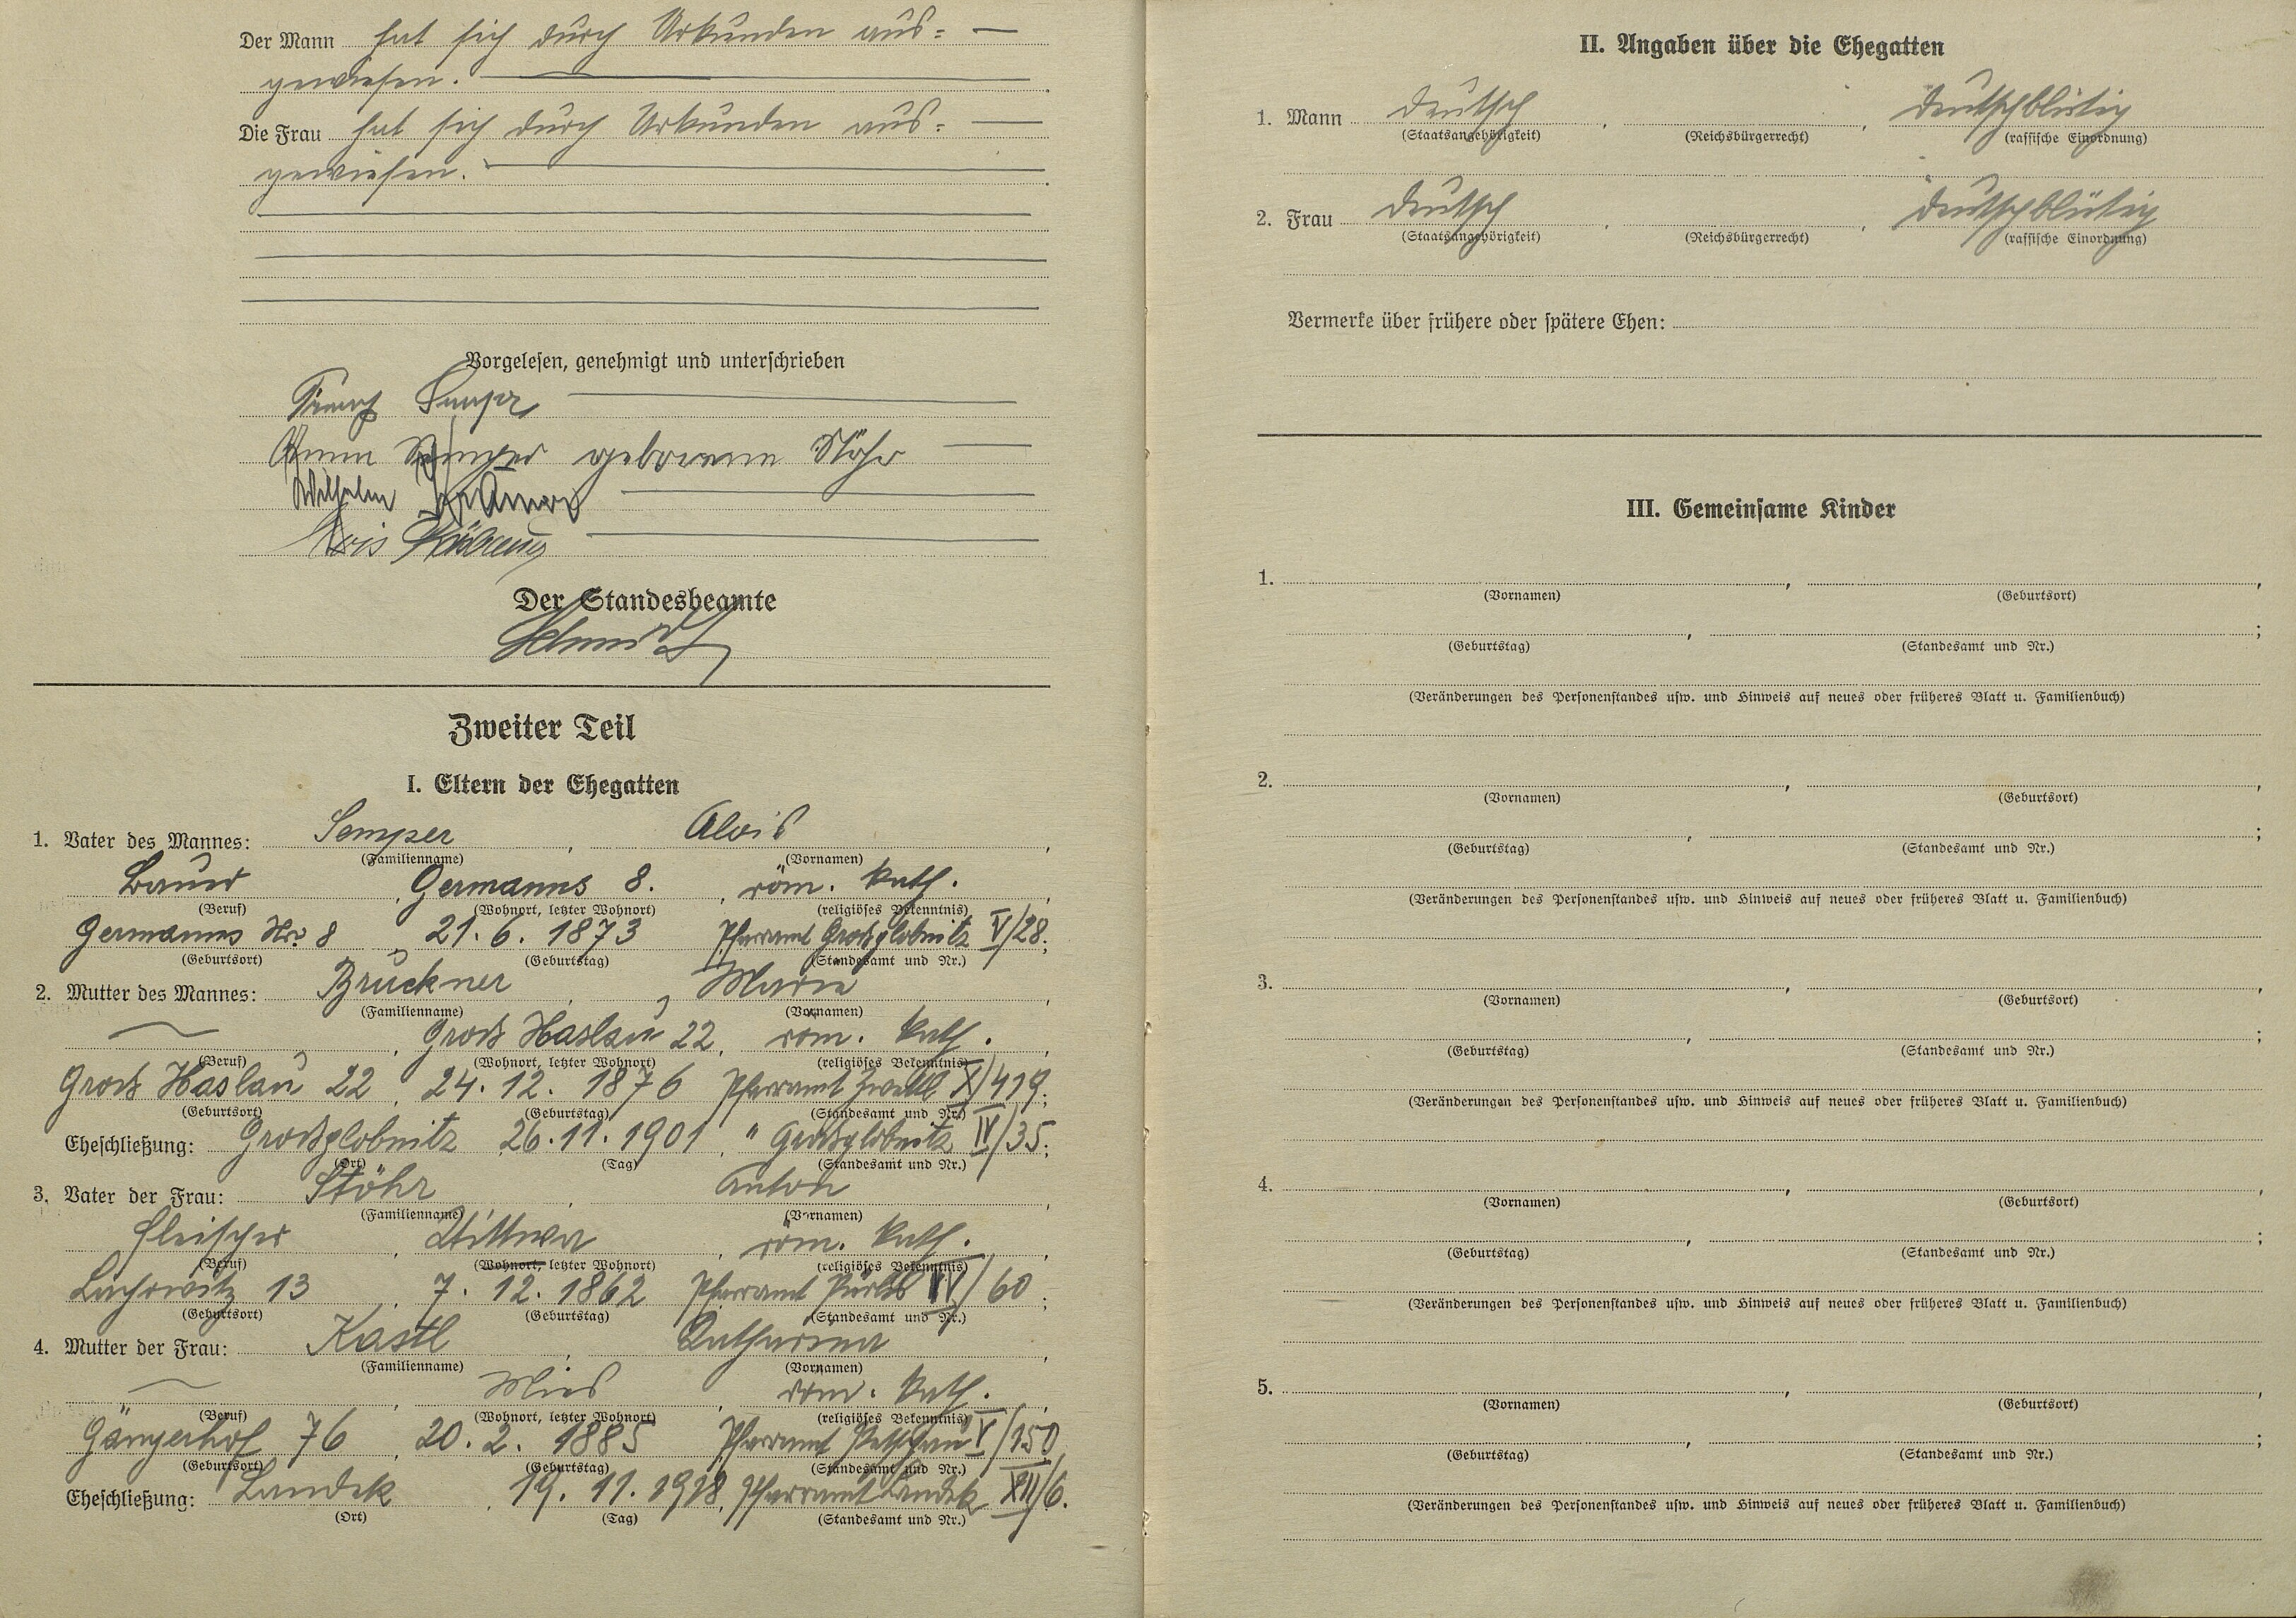 Der Mann hat sich durch Urkunden aus=
gewiesen.
Die Frau hat sich durch Urkunden aus=
gewiesen.
Vorgelesen, genehmigt und unterschrieben
Franz Semper
Anna Semper geborene Stöhr
Wilhelm
Alois
Der Standesbeamte
Schmidt
Zweiter Teil
I. Eltern der Ehegatten
1. Vater des Mannes: Semper, Alois,
(Familienname) (Vornamen)
Bauer, Germanns 8., röm. kath.,
(Beruf) (Wohnort, letzter Wohnort) (religiöses Bekenntnis)
Germanns Nr. 8, 21. 6. 1873 Pfarramt Großglobnitz V/28;
(Geburtsort) (Geburtstag) (Standesamt und Nr.)
2. Mutter des Mannes: Bruckner, Maria,
(Familienname) (Vornamen)
, Groß Haslau 22, röm. kath.,
(Beruf) (Wohnort, letzter Wohnort) (religiöses Bekenntnis)
Groß Haslau 22, 24. 12. 1876 Pfarramt Zwettl X/419;
(Geburtsort) (Geburtstag) (Standesamt und Nr.)
Eheschließung: Großglobnitz, 26. 11. 1901, " Großglobnitz IV/35;
(Ort) (Tag) (Standesamt und Nr.)
3. Vater der Frau: Stöhr, Anton,
(Familienname) (Vornamen)
Fleischer, Uittwa, röm. kath.,
(Beruf) (Wohnort, letzter Wohnort) (religiöses Bekenntnis)
13, 7. 12. 1862 Pfarramt IV/60;
(Geburtsort) (Geburtstag) (Standesamt und Nr.)
4. Mutter der Frau: Kastl, Katharina,
(Familienname) (Vornamen)
, Mies, röm. kath.,
(Beruf) (Wohnort, letzter Wohnort) (religiöses Bekenntnis)
Gängerhof 76, 20. 2. 1885 Pfarramt Petschau V/150
(Geburtsort) (Geburtstag) (Standesamt und Nr.)
Eheschließung: Landek, 19. 11. 1918, Pfarramt Landek XII/6.
(Ort) (Tag) (Standesamt und Nr.)
II. Angaben über die Ehegatten
1. Mann deutsch, , deutschblütig
(Staatsangehörigkeit) (Reichsbürgerrecht) (rassische Einordnung)
2. Frau deutsch, , deutschblütig
(Staatsangehörigkeit) (Reichsbürgerrecht) (rassische Einordnung)
Vermerke über frühere oder spätere Ehen:
III. Gemeinsame Kinder
1. , ,
(Vornamen) (Geburtsort)
, ;
(Geburtstag) (Standesamt und Nr.)
(Veränderungen des Personenstandes usw. und Hinweis auf neues oder früheres Blatt u. Familienbuch)
2. , ,
(Vornamen) (Geburtsort)
, ;
(Geburtstag) (Standesamt und Nr.)
(Veränderungen des Personenstandes usw. und Hinweis auf neues oder früheres Blatt u. Familienbuch)
3. , ,
(Vornamen) (Geburtsort)
, ;
(Geburtstag) (Standesamt und Nr.)
(Veränderungen des Personenstandes usw. und Hinweis auf neues oder früheres Blatt u. Familienbuch)
4. , ,
(Vornamen) (Geburtsort)
, ;
(Geburtstag) (Standesamt und Nr.)
(Veränderungen des Personenstandes usw. und Hinweis auf neues oder früheres Blatt u. Familienbuch)
5. , ,
(Vornamen) (Geburtsort)
, ;
(Geburtstag) (Standesamt und Nr.)
(Veränderungen des Personenstandes usw. und Hinweis auf neues oder früheres Blatt u. Familienbuch)